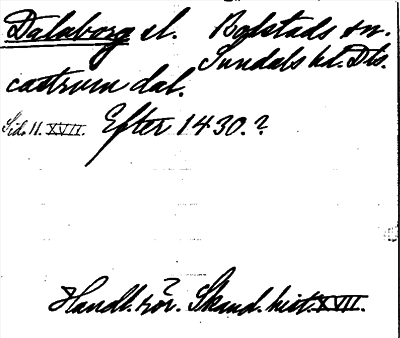 Dalaborg sl. Bolstads sn.
Sundals hd. Dls.
castrum dal.
Sid. 11. XVII. Efter 1430.?
Handl. rör. Skand. hist. XVII.